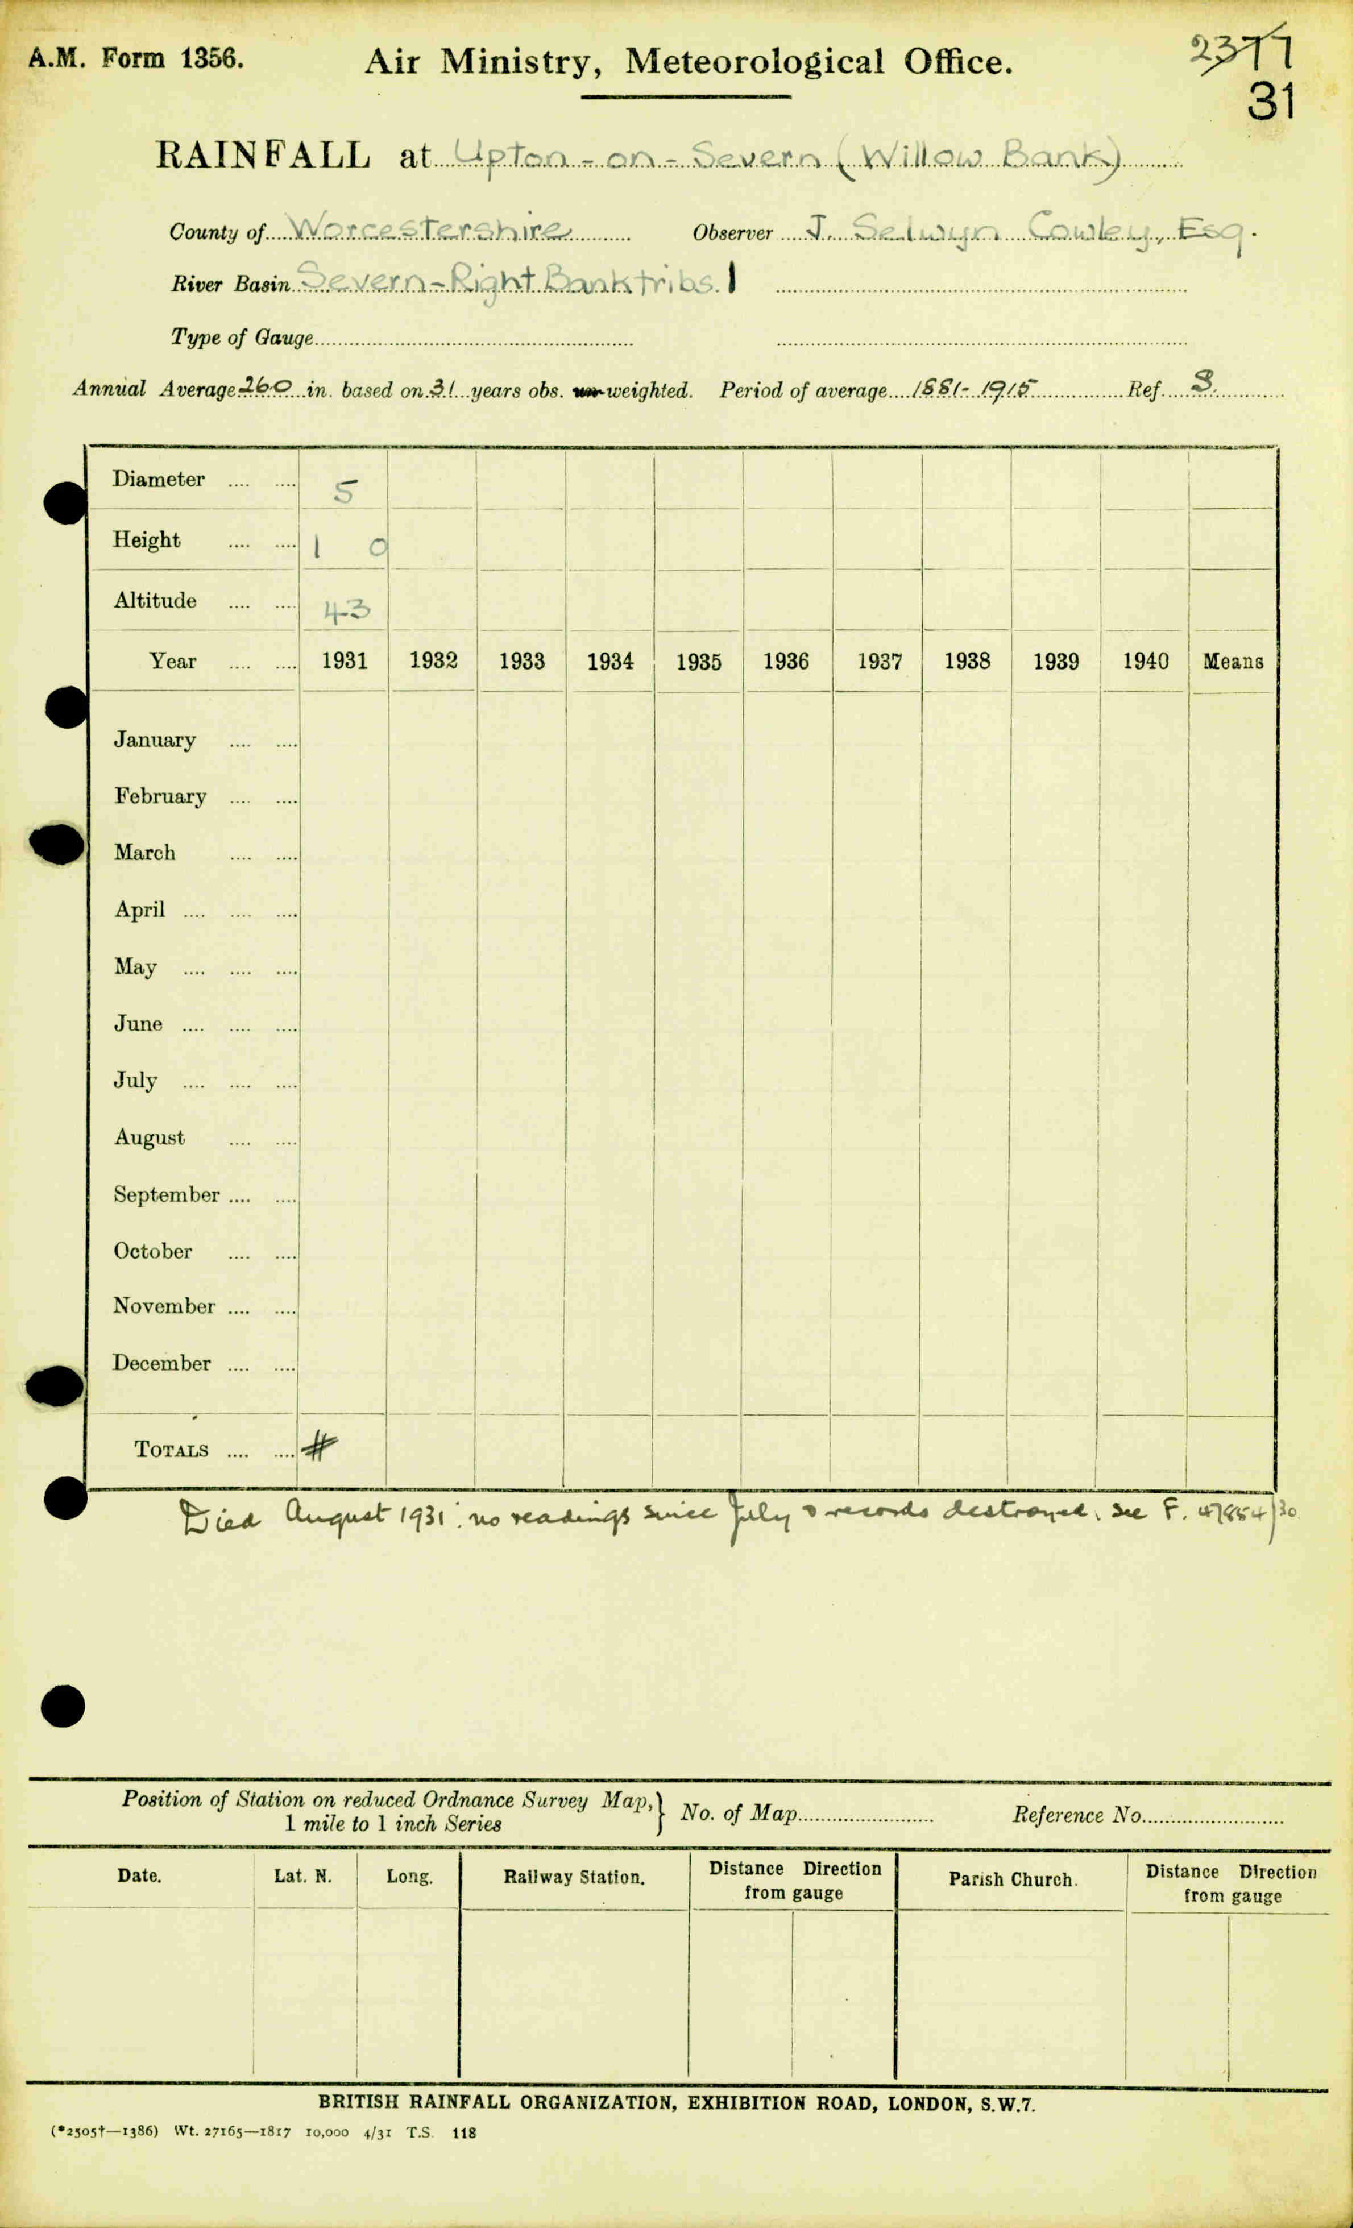 A.M. Form 1356. Air Ministry, Meteorological Office. 2377
31
RAINFALL at Upton-on-Severn (Willow Bank)
County of Worcestershire Observer J. Selwyn Cowley, Esq.
River Basin Severn-Right Bank tribs. 1
Type of Gauge
Annual Average 26.0 in. based on 31 years obs. un-weighted. Period of average 1881-1915 Ref. S.
Diameter 5
Height 1 0
Altitude 43
Year 1931 1932 1933 1934 1935 1936 1937 1938 1939 1940 Means
January
February
March
April
May
June
July
August
September
October
November
December
TOTALS #
Died August 1931: no readings since July & records destroyed. See F. 47854/30
Position of Station on reduced Ordnance Survey Map,} No. of Map Reference No.
1 mile to 1 inch Series
Date. Lat. N. Long. Railway Station. Distance Direction Parish Church. Distance Direction
from gauge from gauge
BRITISH RAINFALL ORGANIZATION, EXHIBITION ROAD, LONDON, S.W.7.
(*2505†—1386) Wt. 27165—1817 10,000 4/31 T.S. 118